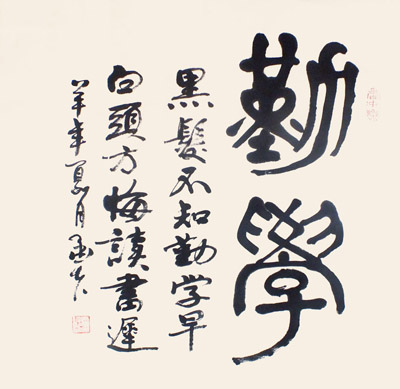 勤學
黑髮不知勤学早
白頭方悔讀書遲
羊年夏月